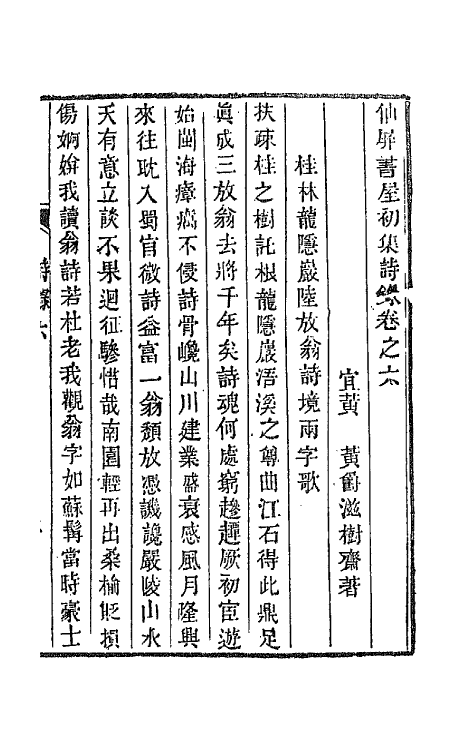 仙屏書屋初集詩錄卷之六
宜黃　黃爵滋樹齋著
桂林龍隱巖陸放翁詩境兩字歌
扶疎桂之樹託根龍隱巖浯溪之尊曲江石得此鼎足
眞成三放翁去將千年矣詩魂何處窮趁趯厥初宦遊
始閩海瘴癘不侵詩骨巉山川建業盛衰感風月隆興
來往眈入蜀官微詩益富一翁頹放憑譏讒嚴陵山水
天有意立談不果迴征驂惜哉南園輕再出桑榆貶損
傷婀媕我讀翁詩若杜老我觀翁字如蘇髯當時豪士
詩錄六